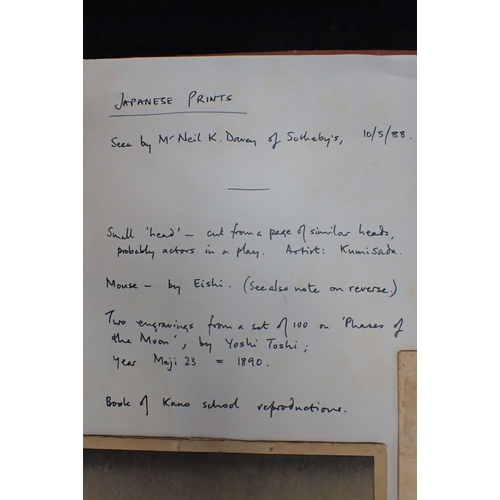 JAPANESE PRINTS
Seen by Mr Neil K. Davey of Sotheby's, 10/5/88.
Small 'head' – cut from a page of similar heads,
probably actors in a play. Artist: Kunisada.
Mouse – by Eishi. (See also note on reverse.)
Two engravings from a set of 100 on 'Phases of
the Moon', by Yoshi Toshi;
Year Meji 23 = 1890.
Book of Kano school reproductions.